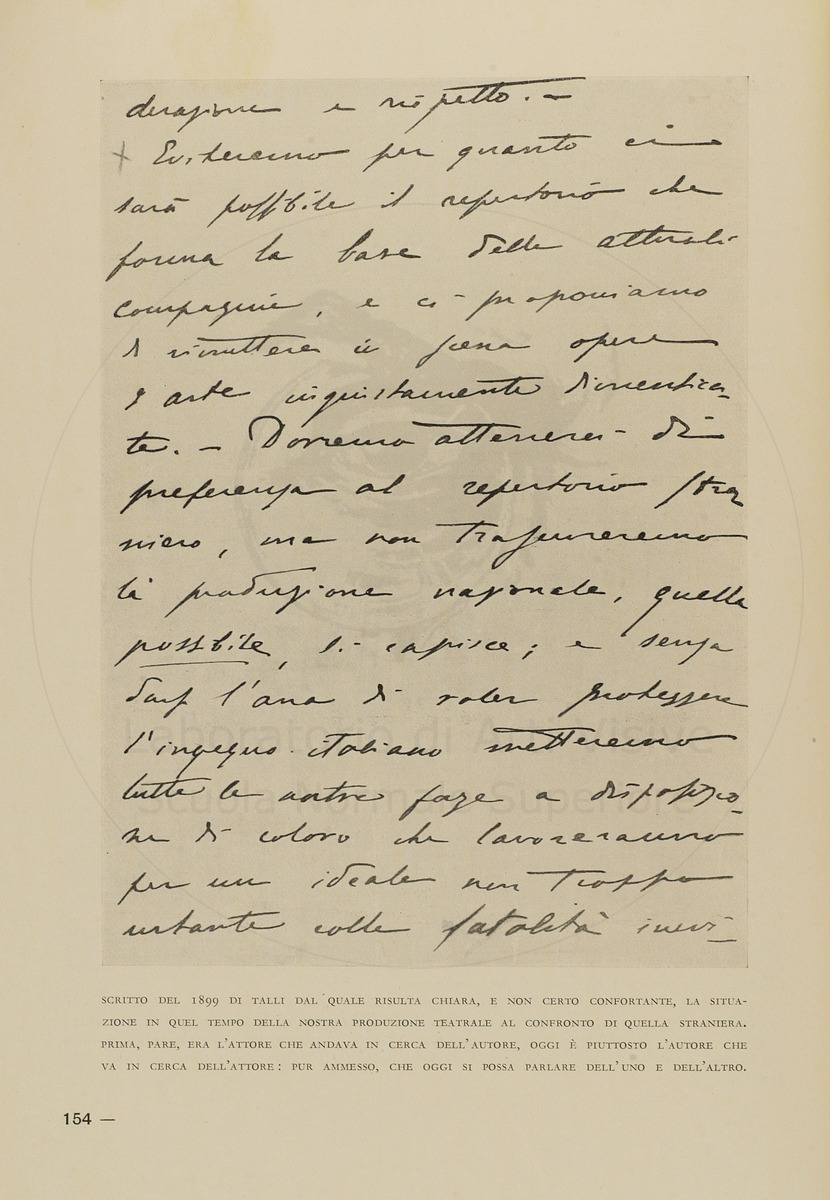 derazione e rispetto. —
+ Eviteremo per quanto ci
sarà possibile il repertorio che
forma la base delle attuali
compagnie, e ci proponiamo
di rimettere in scena opere
d'arte ingiustamente dimentica-
te. — Dovremo attenerci di
preferenza al repertorio stra
niero, ma non trascureremo
la produzione nazionale, quella
possibile, si capisce; e senza
darsi l'aria di voler proteggere
l'ingegno italiano metteremo
tutte le nostre forze a disposizio-
ne di coloro che lavoreranno
per un ideale non troppo
urtante colle fatalità inevi-
Laboratorio di Arti Visive
Scuola Normale Superiore
SCRITTO DEL 1899 DI TALLI DAL QUALE RISULTA CHIARA, E NON CERTO CONFORTANTE, LA SITUA-
ZIONE IN QUEL TEMPO DELLA NOSTRA PRODUZIONE TEATRALE AL CONFRONTO DI QUELLA STRANIERA.
PRIMA, PARE, ERA L'ATTORE CHE ANDAVA IN CERCA DELL'AUTORE, OGGI È PIUTTOSTO L'AUTORE CHE
VA IN CERCA DELL'ATTORE: PUR AMMESSO, CHE OGGI SI POSSA PARLARE DELL'UNO E DELL'ALTRO.
154 —